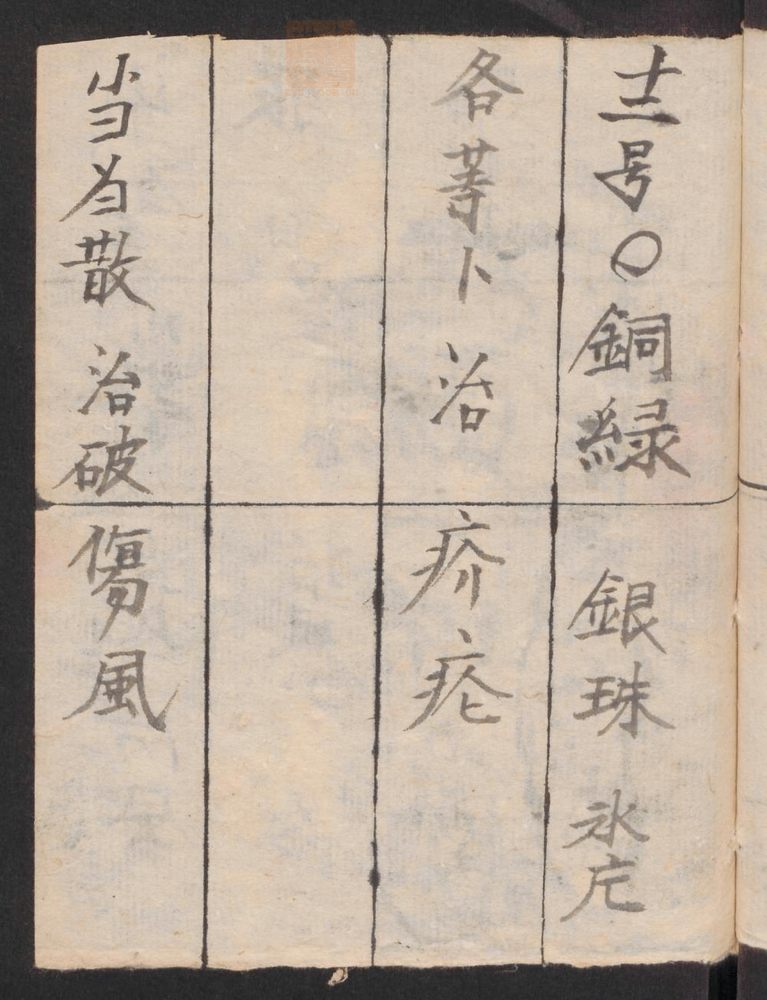 十二号〇銅緑 銀珠 氷片
各等卜 治 疥疮
当归散 治破傷風